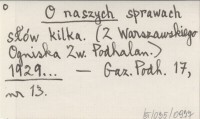 O naszych sprawach
słów kilka. (Z Warszawskiego
Ogniska Zw. Podhalan.)
1929... — Gaz. Podh. 17,
nr 13.